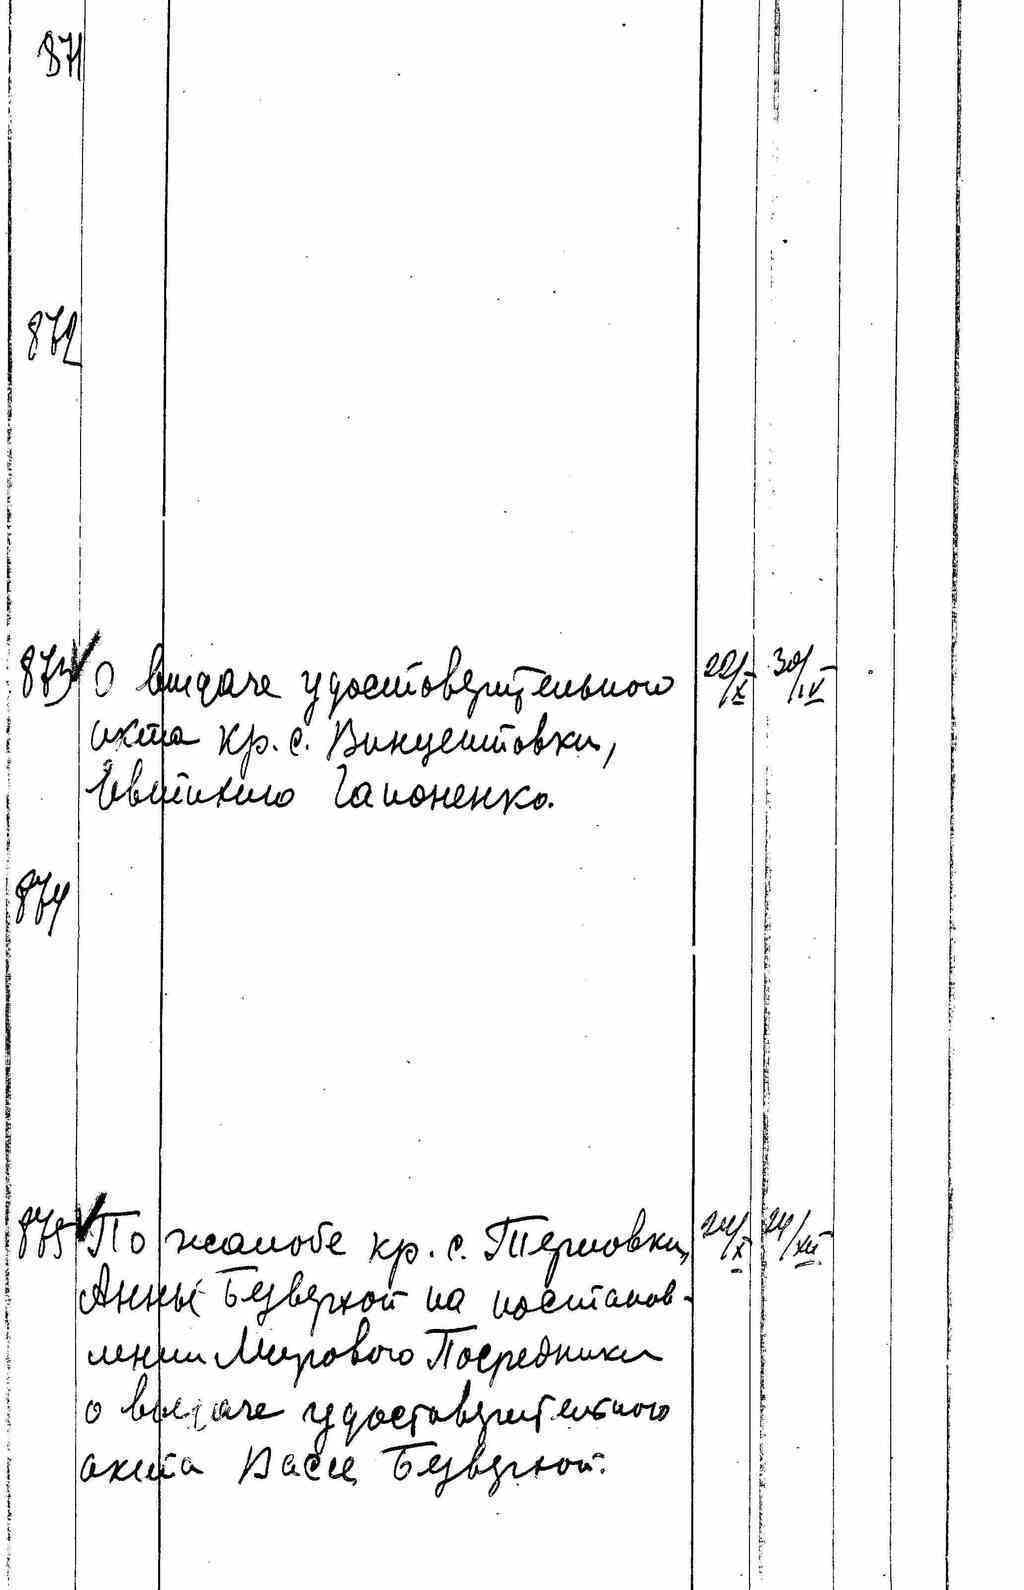 871
872
873 О выдаче удостверительного 22/X 30/IV
акта кр. с. Винцентовки,
Евтихию Гапоненко.
874
875 По жалобе кр. с. Терновки, 24/X 24/XII
Анны Безверхой на постанов-
лении Мирового Посредника
о выдаче удостоверительного
акта Вассе Безверхой.